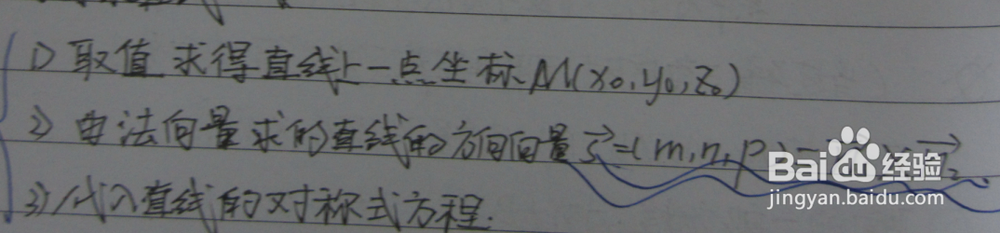 1) 取值 求得直线上一点坐标 M(x₀,y₀,z₀)
2) 由法向量求的直线的方向向量 s⃗=(m,n,p)
3) 代入直线的对称式方程.
Baidu经验
jingyan.baidu.com